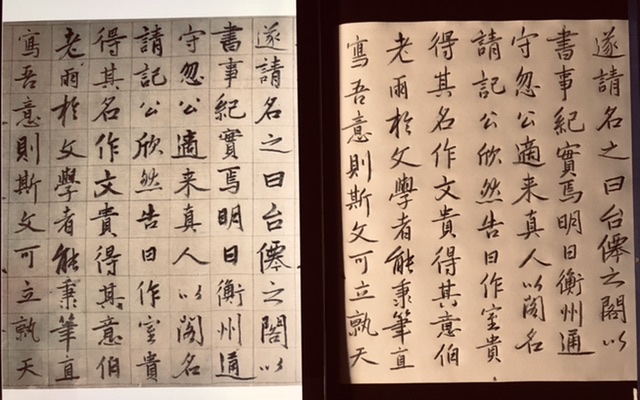 遂請名之曰台僊之閣以
書事紀實焉明日衡州通
守忽公適来真人以閣名
請記公欣然告曰作室貴
得其名作文貴得其意伯
老雨於文學者能秉筆直
寫吾意則斯文可立孰天
遂請名之曰台僊之閣以
書事紀實焉明日衡州通
守忽公適来真人以閣名
請記公欣然告曰作室貴
得其名作文貴得其意伯
老雨於文學者能秉筆直
寫吾意則斯文可立孰天